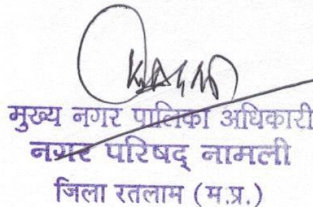 मुख्य नगर पालिका अधिकारी
नगर परिषद् नामली
जिला रतलाम (म.प्र.)